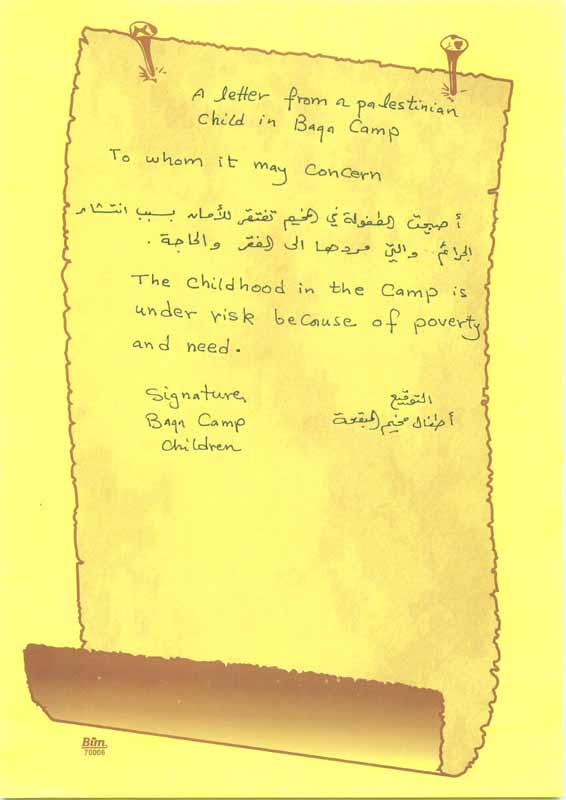 A letter from a palestinian
Child in Baqa Camp
To whom it may Concern
أصبحت الطفولة في المخيم تفتقر للأمان بسبب انتشار
الجرائم والتي مردها الى الفقر والحاجة .
The Childhood in the Camp is
under risk because of poverty
and need.
Signature,
Baqa Camp
Children
التوقيع
أطفال مخيم البقعة
Bim
70006